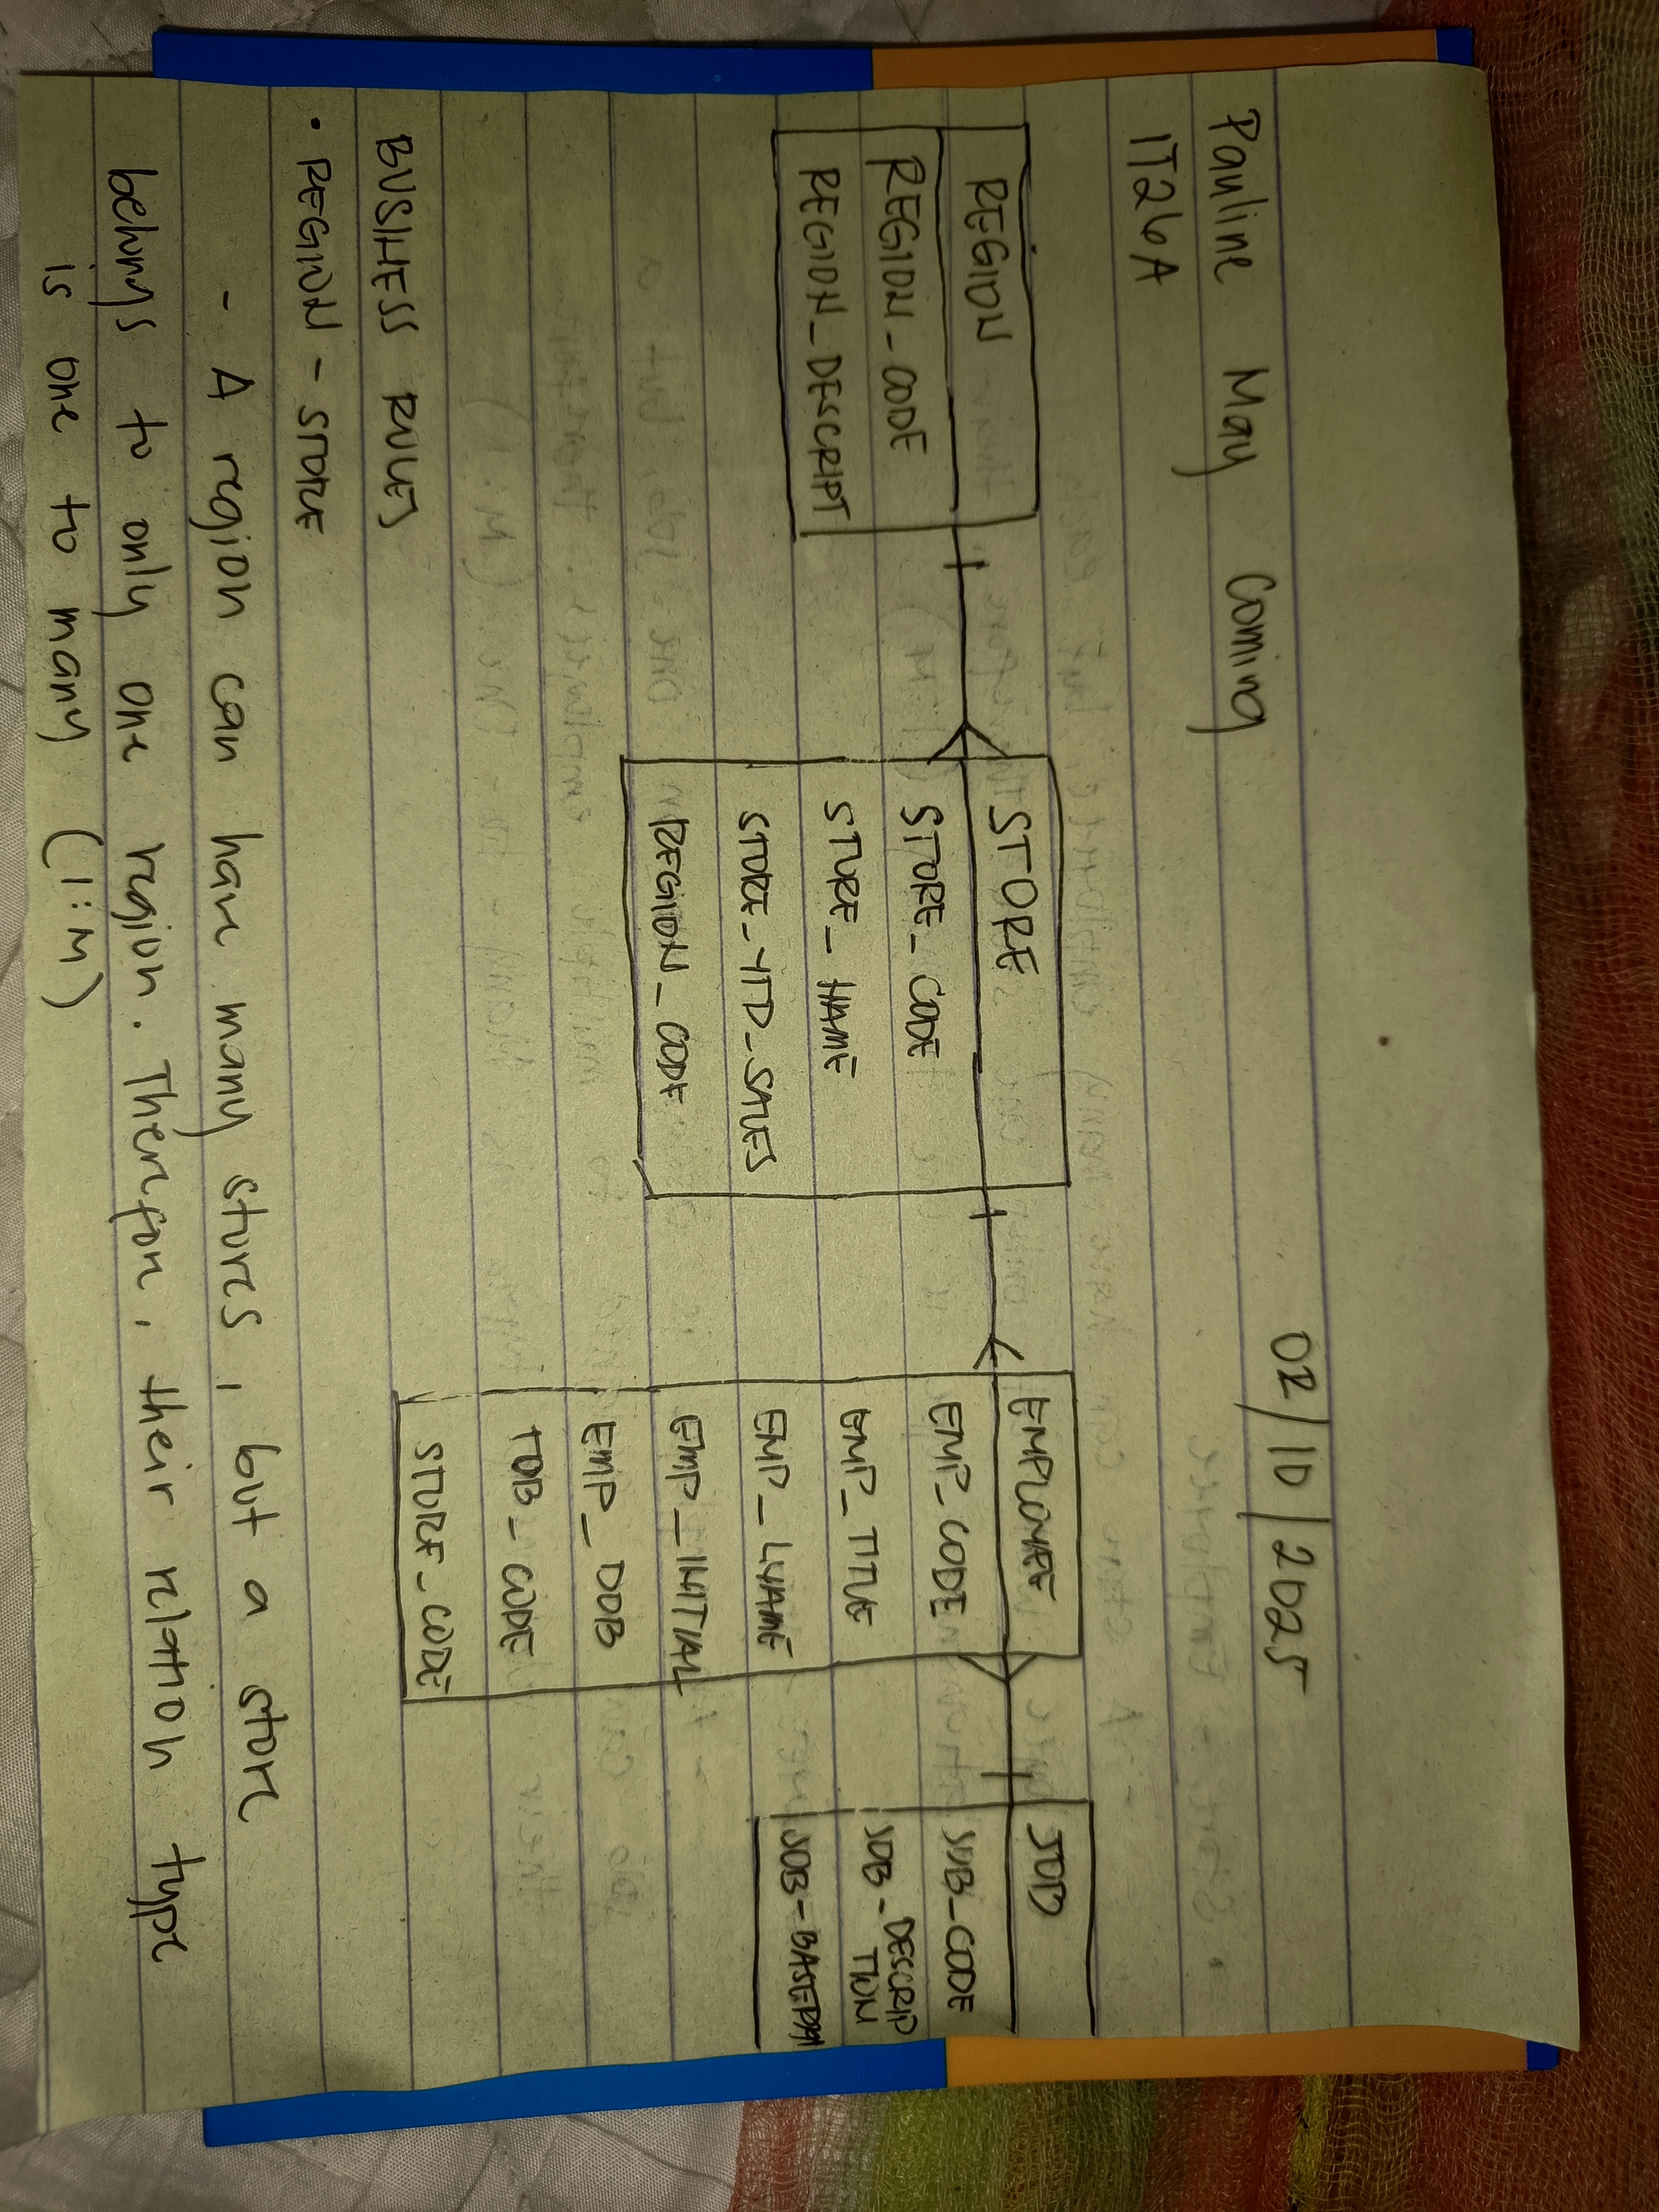 Pauline May Coming 02/10/2025
IT26A
REGION
REGION_CODE
REGION_DESCRIPT
STORE
STORE_CODE
STORE_NAME
STORE_YTD_SALES
REGION_CODE
EMPLOYEE
EMP_CODE
EMP_TITLE
EMP_LNAME
EMP_INITIAL
EMP_DOB
JOB_CODE
STORE_CODE
JOB
JOB_CODE
JOB_DESCRIP
TION
JOB_BASEPAY
BUSINESS RULES
• REGION - STORE
- A region can have many stores, but a store
belongs to only one region. Therefore, their relation type
is one to many (1:M)